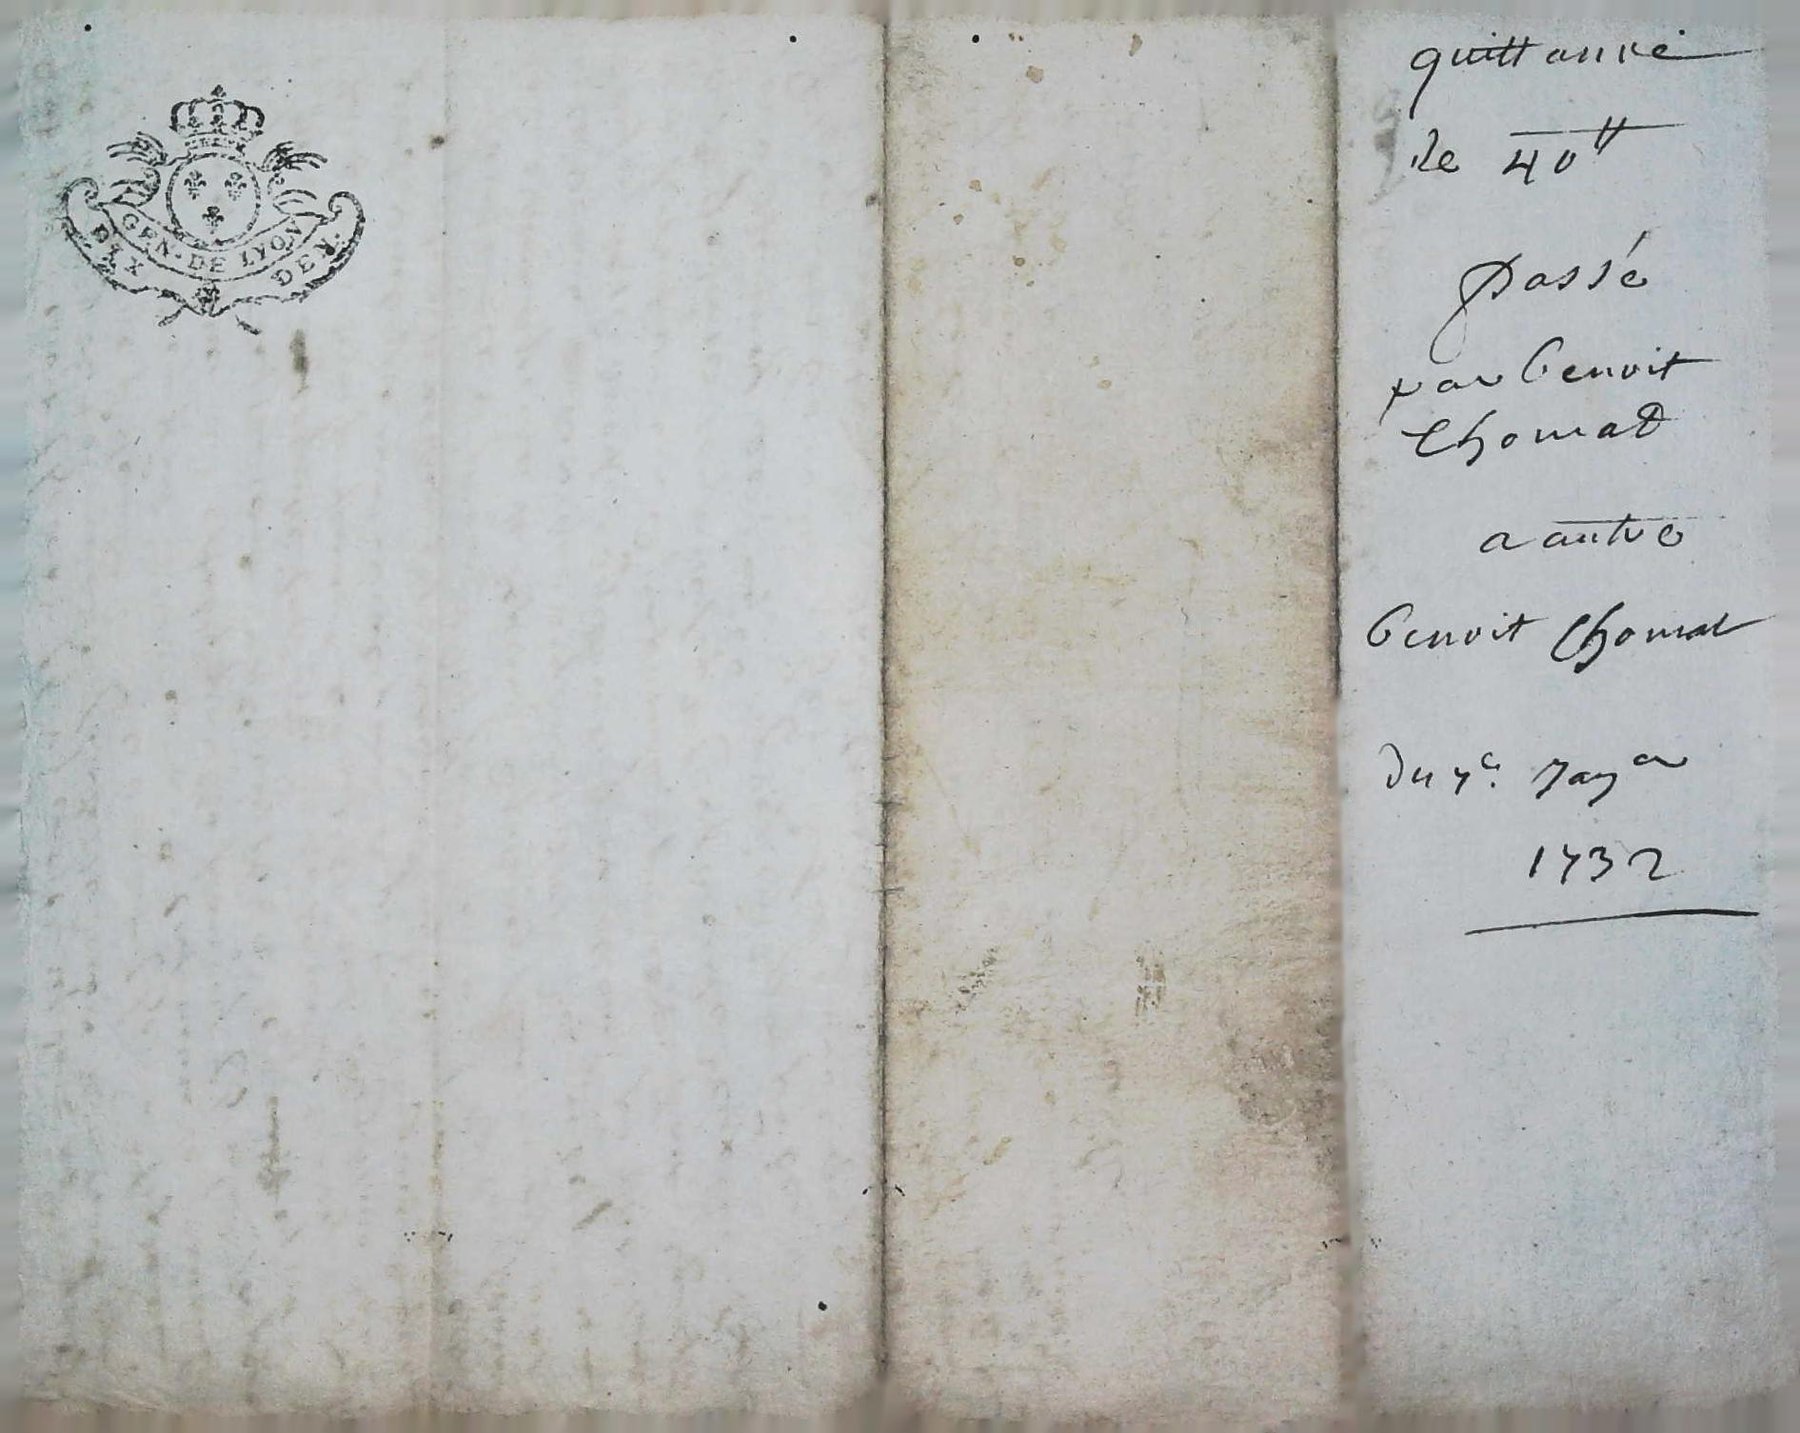 GEN. DE LYON
DIX DEN.
quittance
de 40 tt
passé
par benoit
Chomat
a autre
benoit Chomat
du 7e.
1732